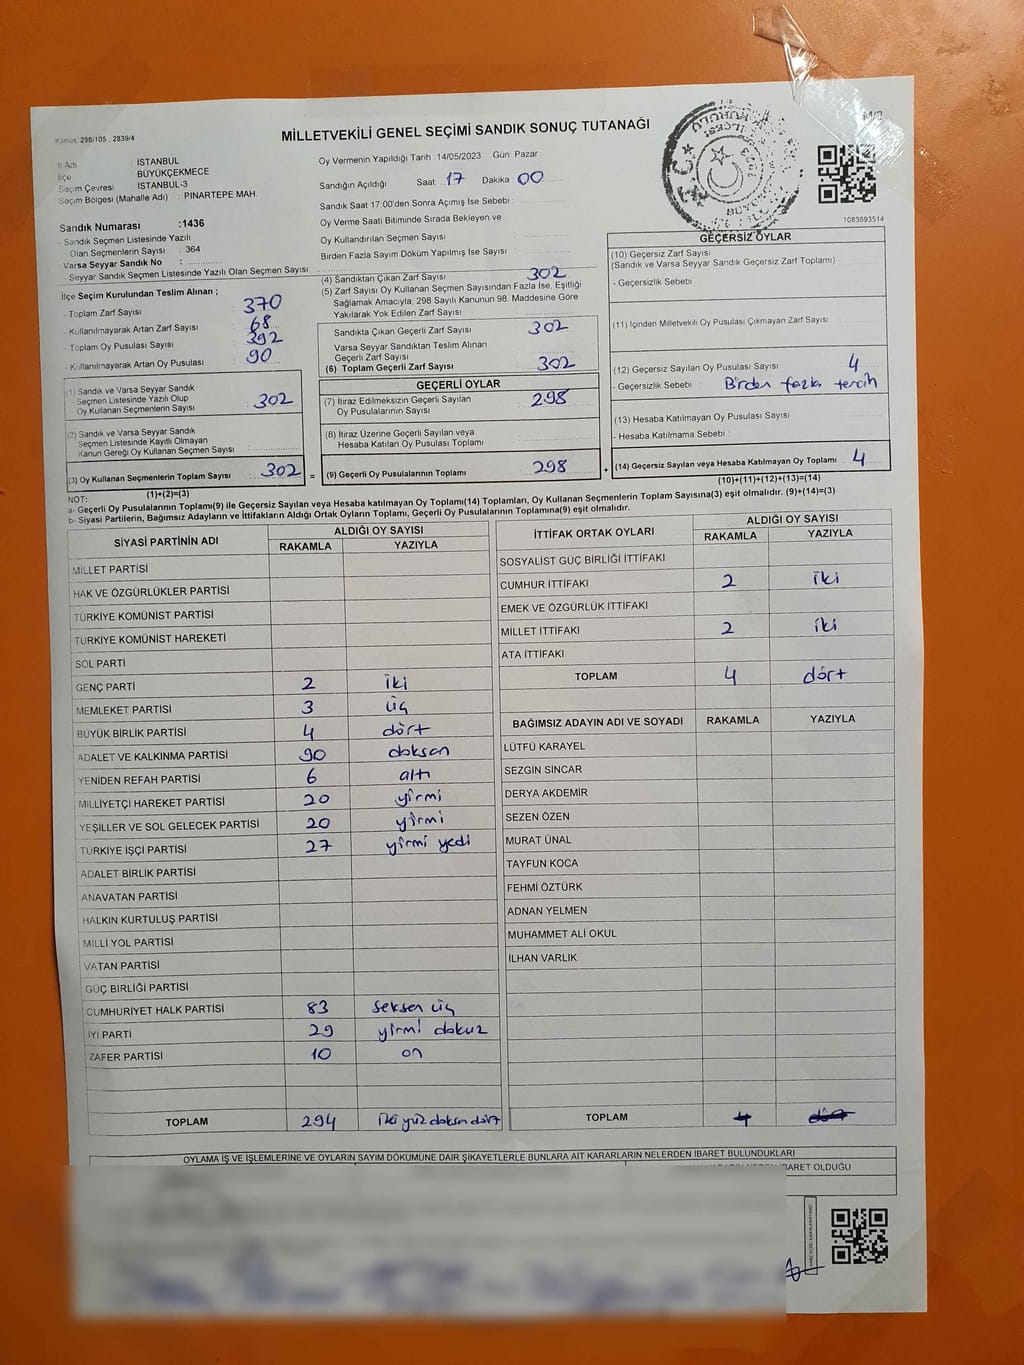 Kanun, 298/105 , 2839/4
MİLLETVEKİLİ GENEL SEÇİMİ SANDIK SONUÇ TUTANAĞI
İl Adı : İSTANBUL
İlçe : BÜYÜKÇEKMECE
Seçim Çevresi : İSTANBUL-3
Seçim Bölgesi (Mahalle Adı) : PINARTEPE MAH.
Oy Vermenin Yapıldığı Tarih : 14/05/2023 Gün Pazar
Sandığın Açıldığı Saat 17 Dakika 00
Sandık Saat 17:00'den Sonra Açımış İse Sebebi :
Oy Verme Saati Bitiminde Sırada Bekleyen ve
Oy Kullandırılan Seçmen Sayısı :
Birden Fazla Sayım Döküm Yapılmış İse Sayısı :
1083893514
Sandık Numarası :1436
- Sandık Seçmen Listesinde Yazılı
Olan Seçmenlerin Sayısı : 364
Varsa Seyyar Sandık No :
- Seyyar Sandık Seçmen Listesinde Yazılı Olan Seçmen Sayısı
İlçe Seçim Kurulundan Teslim Alınan ;
- Toplam Zarf Sayısı : 370
- Kullanılmayarak Artan Zarf Sayısı : 68
- Toplam Oy Pusulası Sayısı : 392
- Kullanılmayarak Artan Oy Pusulası : 90
(1) Sandık ve Varsa Seyyar Sandık
Seçmen Listesinde Yazılı Olup
Oy Kullanan Seçmenlerin Sayısı : 302
(2) Sandık ve Varsa Seyyar Sandık
Seçmen Listesinde Kayıtlı Olmayan
Kanun Gereği Oy Kullanan Seçmen Sayısı :
(3) Oy Kullanan Seçmenlerin Toplam Sayısı : 302 =
(1)+(2)=(3)
(4) Sandıktan Çıkan Zarf Sayısı 302
(5) Zarf Sayısı Oy Kullanan Seçmen Sayısından Fazla İse, Eşitliği
Sağlamak Amacıyla, 298 Sayılı Kanunun 98. Maddesine Göre
Yakılarak Yok Edilen Zarf Sayısı :
Sandıkta Çıkan Geçerli Zarf Sayısı 302
Varsa Seyyar Sandıktan Teslim Alınan
Geçerli Zarf Sayısı :
(6) Toplam Geçerli Zarf Sayısı 302
GEÇERLİ OYLAR
(7) İtiraz Edilmeksizin Geçerli Sayılan
Oy Pusulalarının Sayısı : 298
(8) İtiraz Üzerine Geçerli Sayılan ve
Hesaba Katılan Oy Pusulası Toplamı :
(9) Geçerli Oy Pusulalarının Toplamı 298 +
GEÇERSİZ OYLAR
(10) Geçersiz Zarf Sayısı
(Sandık ve Varsa Seyyar Sandık Geçersiz Zarf Toplamı) :
- Geçersizlik Sebebi :
(11) İçinden Milletvekili Oy Pusulası Çıkmayan Zarf Sayısı :
(12) Geçersiz Sayılan Oy Pusulası Sayısı : 4
- Geçersizlik Sebebi : Birden fazla tercih
(13) Hesaba Katılmayan Oy Pusulası Sayısı :
- Hesaba Katılmama Sebebi :
(14) Geçersiz Sayılan veya Hesaba Katılmayan Oy Toplamı 4
(10)+(11)+(12)+(13)=(14)
NOT:
a- Geçerli Oy Pusulalarının Toplamı(9) ile Geçersiz Sayılan veya Hesaba katılmayan Oy Toplamı(14) Toplamları, Oy Kullanan Seçmenlerin Toplam Sayısına(3) eşit olmalıdır. (9)+(14)=(3)
b- Siyasi Partilerin, Bağımsız Adayların ve İttifakların Aldığı Ortak Oyların Toplamı, Geçerli Oy Pusulalarının Toplamına(9) eşit olmalıdır.
SİYASİ PARTİNİN ADI ALDIĞI OY SAYISI
RAKAMLA YAZIYLA
MİLLET PARTİSİ
HAK VE ÖZGÜRLÜKLER PARTİSİ
TÜRKİYE KOMÜNİST PARTİSİ
TÜRKİYE KOMÜNİST HAREKETİ
SOL PARTİ
GENÇ PARTİ 2 iki
MEMLEKET PARTİSİ 3 üç
BÜYÜK BİRLİK PARTİSİ 4 dört
ADALET VE KALKINMA PARTİSİ 90 doksan
YENİDEN REFAH PARTİSİ 6 altı
MİLLİYETÇİ HAREKET PARTİSİ 20 yirmi
YEŞİLLER VE SOL GELECEK PARTİSİ 20 yirmi
TÜRKİYE İŞÇİ PARTİSİ 27 yirmi yedi
ADALET BİRLİK PARTİSİ
ANAVATAN PARTİSİ
HALKIN KURTULUŞ PARTİSİ
MİLLİ YOL PARTİSİ
VATAN PARTİSİ
GÜÇ BİRLİĞİ PARTİSİ
CUMHURİYET HALK PARTİSİ 83 seksen üç
İYİ PARTİ 29 yirmi dokuz
ZAFER PARTİSİ 10 on
TOPLAM 294 iki yüz doksan dört
İTTİFAK ORTAK OYLARI ALDIĞI OY SAYISI
RAKAMLA YAZIYLA
SOSYALİST GÜÇ BİRLİĞİ İTTİFAKI
CUMHUR İTTİFAKI 2 iki
EMEK VE ÖZGÜRLÜK İTTİFAKI
MİLLET İTTİFAKI 2 iki
ATA İTTİFAKI
TOPLAM 4 dört
BAĞIMSIZ ADAYIN ADI VE SOYADI RAKAMLA YAZIYLA
LÜTFÜ KARAYEL
SEZGİN SİNCAR
DERYA AKDEMİR
SEZEN ÖZEN
MURAT ÜNAL
TAYFUN KOCA
FEHMİ ÖZTÜRK
ADNAN YELMEN
MUHAMMET ALİ OKUL
İLHAN VARLIK
TOPLAM 4 dört
OYLAMA İŞ VE İŞLEMLERİNE VE OYLARIN SAYIM DÖKÜMÜNE DAİR ŞİKAYETLERLE BUNLARA AİT KARARLARIN NELERDEN İBARET BULUNDUKLARI
İBARET OLDUĞU